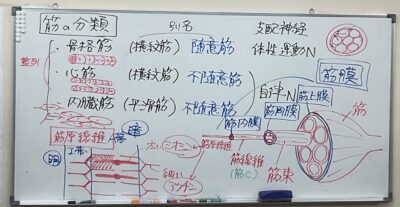 筋の分類 別名 支配神経
・骨格筋 (横紋筋) 随意筋 体性運動N
整列
・心筋 (横紋筋) 不随意筋
・内臓筋 (平滑筋) 不随意筋 自律N
筋膜
筋上膜
筋周膜
筋内膜
筋
筋原線維
A帯
I帯
明
暗
太い ミオシン
細い アクチン
筋原線維
筋線維
(筋C)
筋束